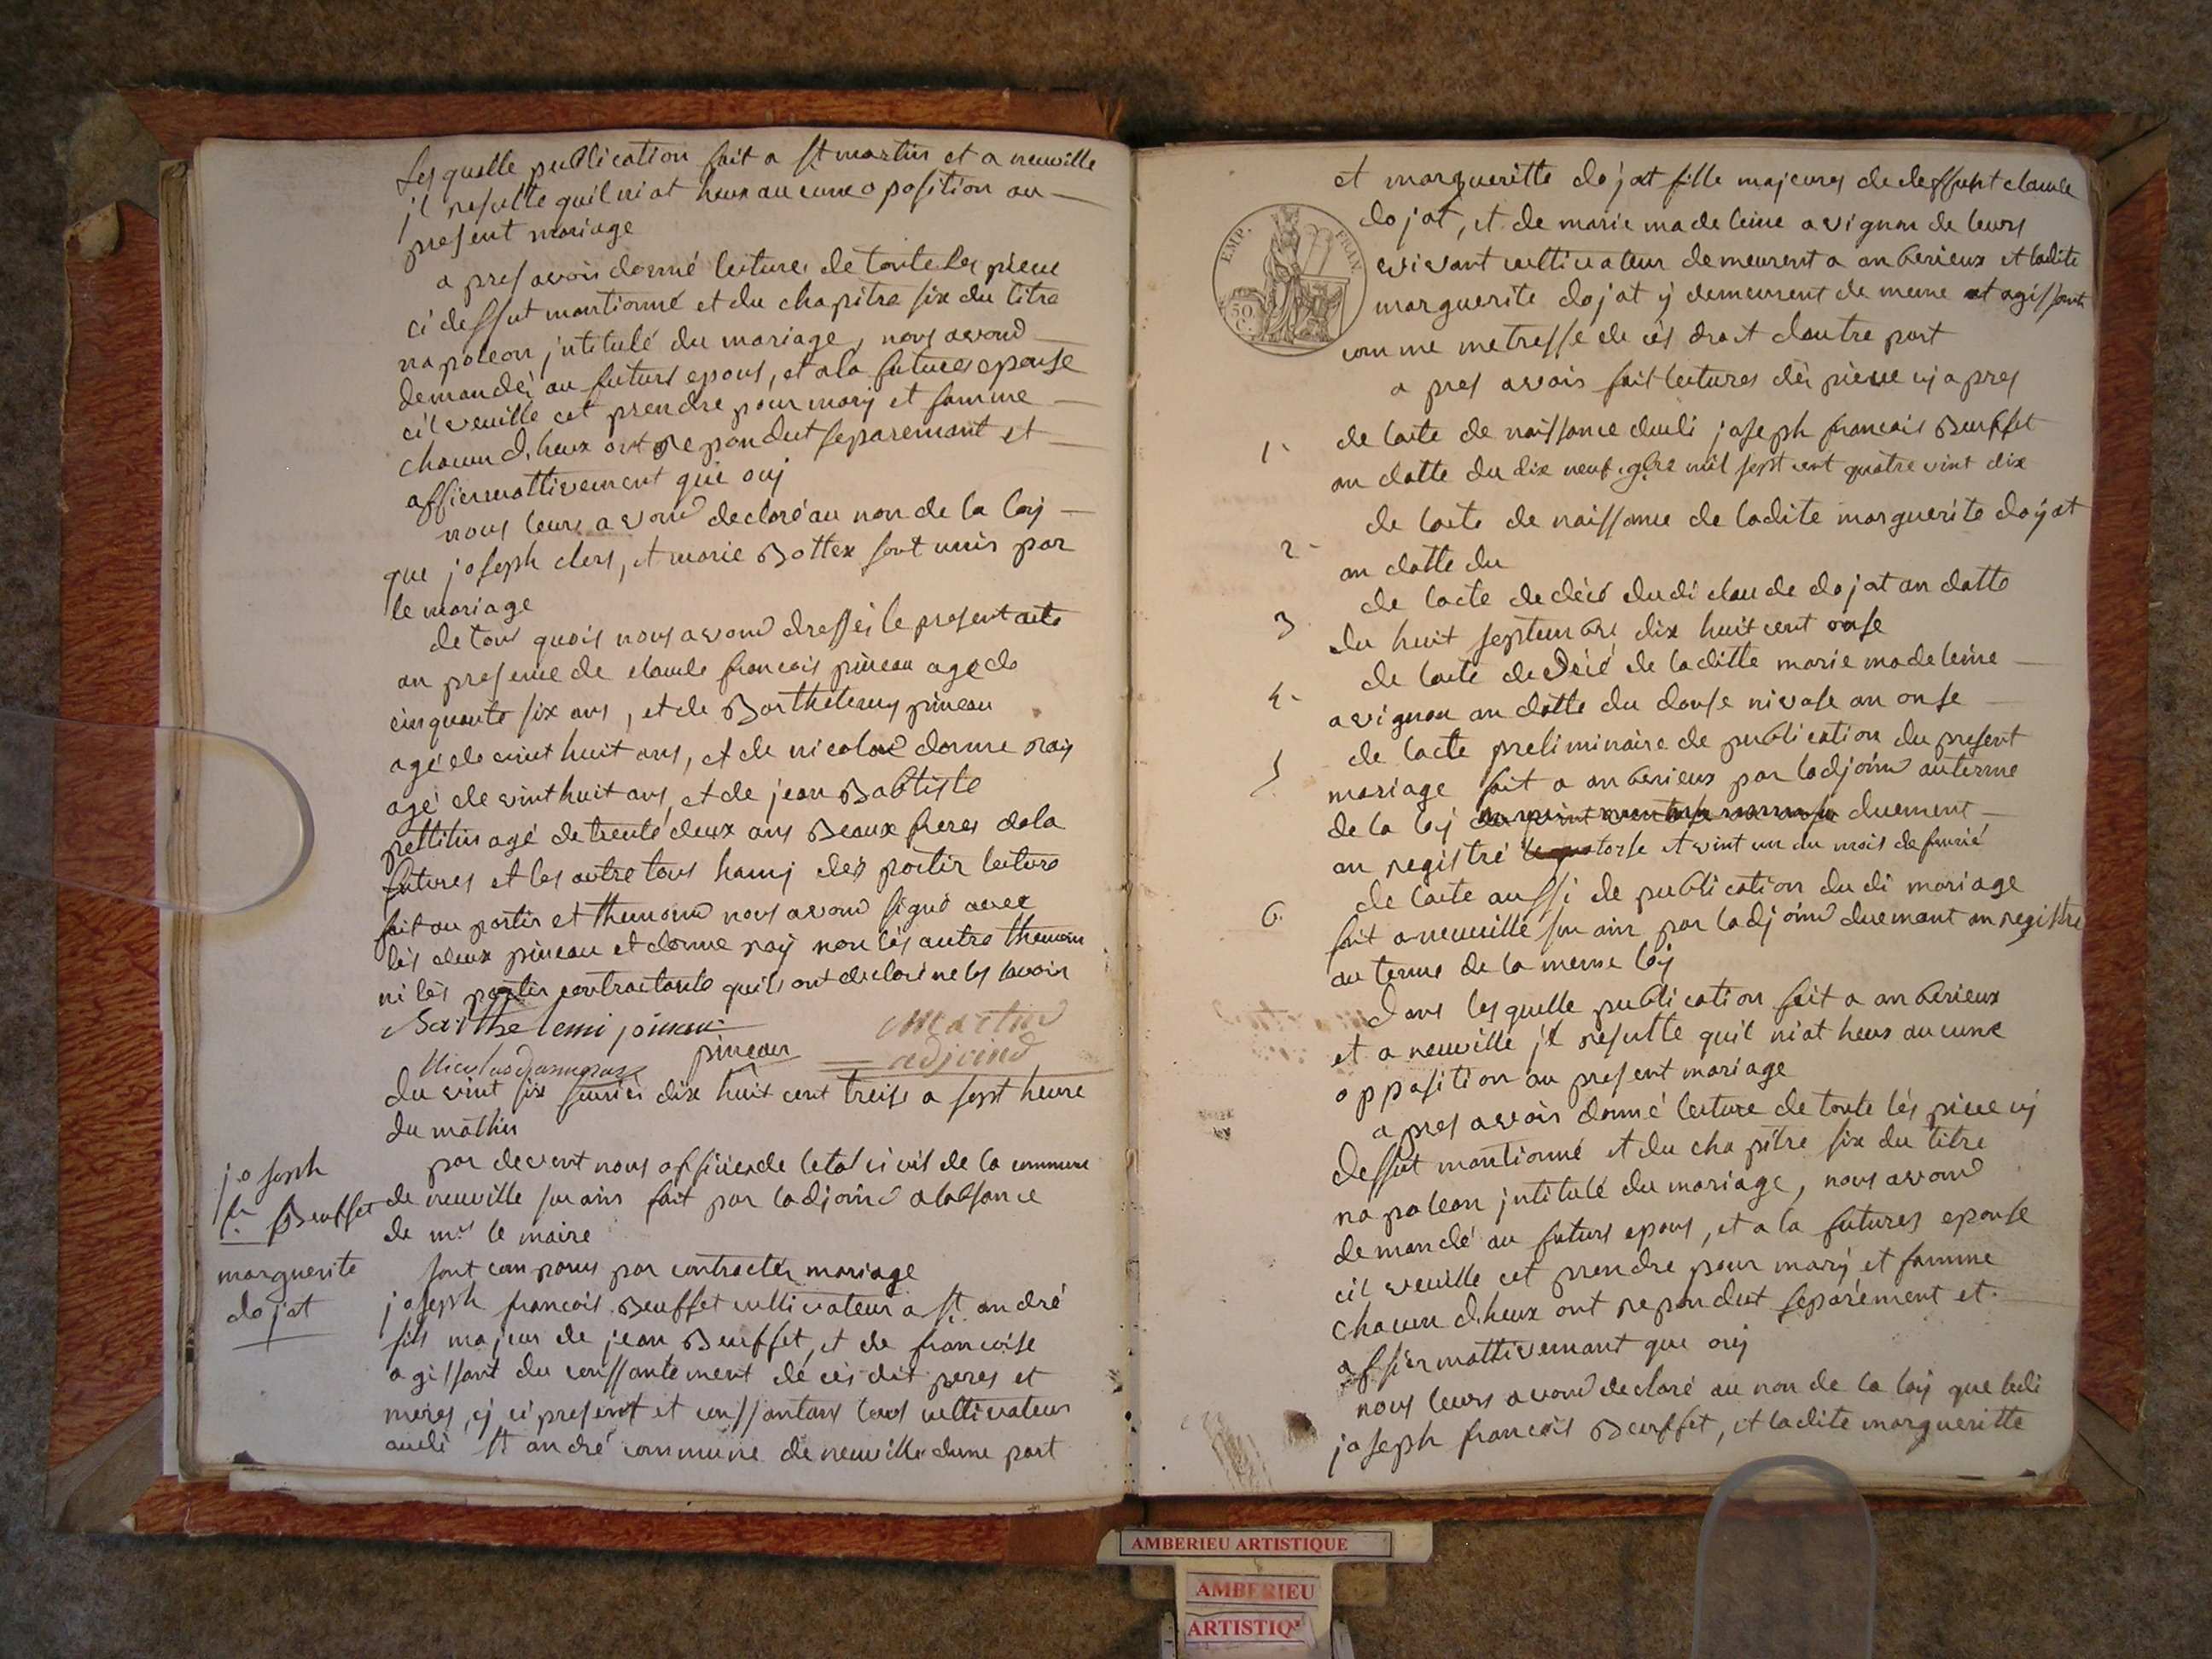 Lesquelle publication fait a St martin et a neuville
jl resulte quil niat heux aucune oposition au
present mariage
apres avoir donné lectures de toute les piece
ci dessut mantionné et du chapitre six du titre
napoleon jntitulé du mariage, nous avond
demandé au futurs epous, et a la futures epouse
cil veuille cet prendre pour mary et famme
chacun d.heux ont repondut separemant et
affiermattivement que ouj
nous leurs avond declaré au non de la loj
que joseph clers, et marie Bottex sont unis par
le mariage
de tout quois nous avond dressés le present acte
an presence de claude francois pineau age de
cinquante six ans, et de Barthelemy pineau
agé de vint huit ans, et de nicolas donne roy
agé de vint huit ans, et de jean Babtiste
pettitin agé de trente deux ans Beaux freres de la
futures et les autre tous hamj des partir lecture
fait au partis et themoind nous avond signé avec
les deux pineau et donne roy non les autre themoin
ni les partis contractante quils ont declaré ne les savoir
Barthelemi pineau
martin
pineau
adjoind
du vint six fevrier dix huit cent treise a sept heure
du mathin
joseph
fr. Beuffet
marguerite
dojat
par devent nous officier de letat civil de la commune
de neuville sur ain fait par ladjoind a labsance
de mr le maire
sont comparus par contracter mariage
joseph francois Beuffet cultivateur a St andré
fils majeur de jean Beuffet, et de francoise
agissant du conssantement de ces dit peres et
meres, cj ci present et conssantans tous cultivateur
audi St andré commune de neuville dune part
EMP. FRAN.
50 C.
et margueritte dojat fille majeures de deffunt claude
dojat, et de marie madeleine avignon de leurs
vivant cultivateur demeurent a anberieux et ladite
marguerite dojat y demeurent de meme et agissante
comme metresse de ces droit dautre part
apres avoir fait lectures des piece cy apres
1. de lacte de naissance dudi joseph francois Beuffet
an datte du dix neuf 9bre mil sept cent quatre vint dix
2. de lacte de naissance de ladite marguerite dojat
an datte du
3. de lacte de décé dudi claude dojat an datte
du huit septembre dix huit cent onse
4. de lacte de décé de laditte marie madeleine
avignon an datte du douse nivose an onse
5. de lacte preliminaire de publication du present
mariage fait a anberieux par ladjoind au terme
de la loj duement
an registré le quatorse et vint un du mois de fevrié
6. de lacte aussi de publication du di mariage
fait a neuville sur ain par ladjoind duemant an registre
au terme de la meme loj
dans lesquelle publication fait a anberieux
et a neuville jl resulte quil niat heus aucune
opposition au present mariage
apres avoir donné lecture de toute les piece cj
dessut mantionné et du chapitre six du titre
napoleon jntitulé du mariage, nous avond
demandé au futurs epous, et a la futures epouse
cil veuille cet prendre pour mary et famme
chacun d.heux ont repondut separément et
affiermattivemant que ouj
nous leurs avond declaré au non de la loj que ledi
joseph francois Beuffet, et ladite margueritte
AMBERIEU ARTISTIQUE
AMBERIEU
ARTISTIQ